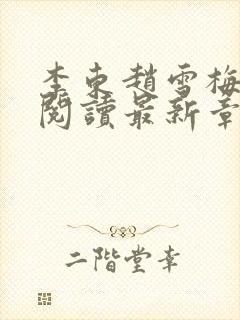 李東趙雪梅
閱讀最新章
二階堂幸